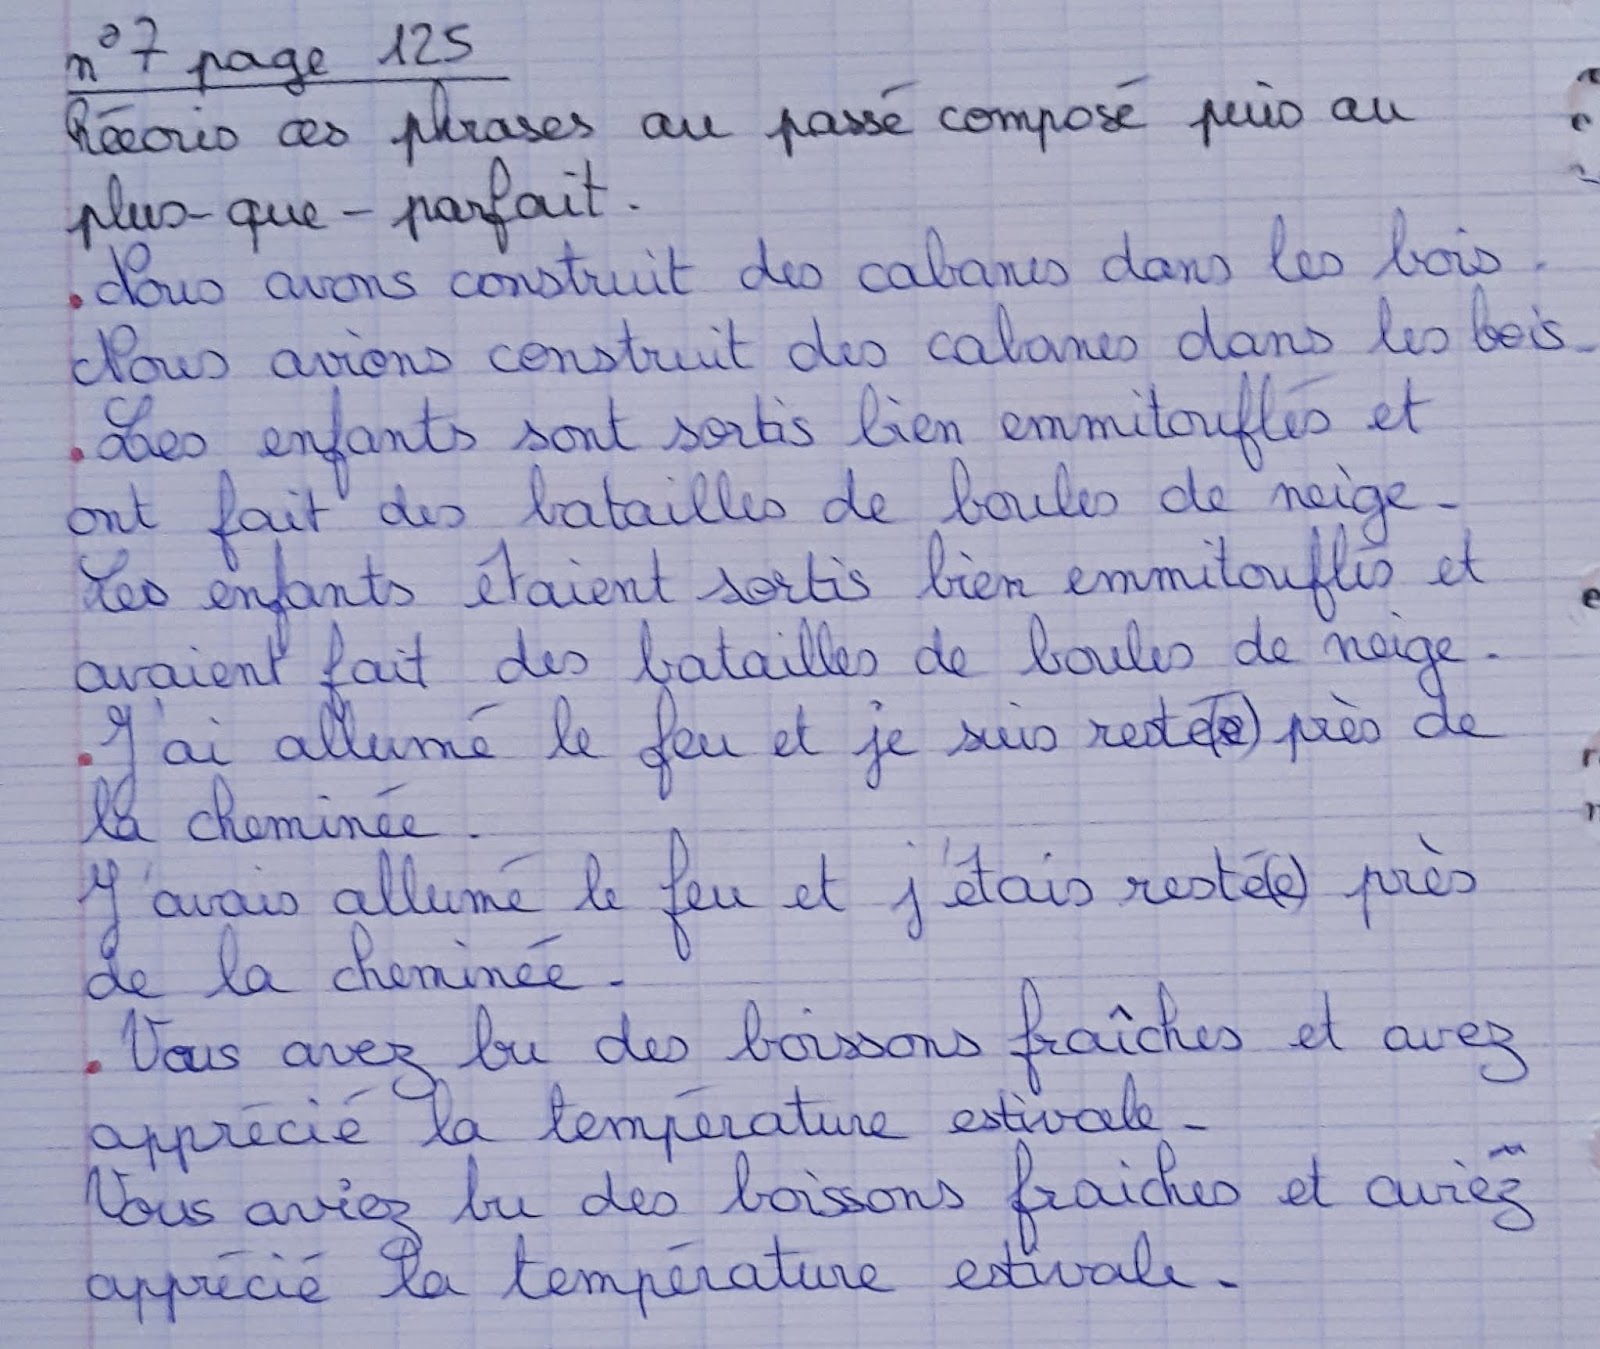 n°7 page 125
Réécris ces phrases au passé composé puis au
plus-que-parfait.
. Nous avons construit des cabanes dans les bois.
Nous avions construit des cabanes dans les bois.
. Les enfants sont sortis bien emmitouflés et
ont fait des batailles de boules de neige.
Les enfants étaient sortis bien emmitouflés et
avaient fait des batailles de boules de neige.
. J'ai allumé le feu et je suis resté(e) près de
la cheminée.
J'avais allumé le feu et j'étais resté(e) près
de la cheminée.
. Vous avez bu des boissons fraîches et avez
apprécié la température estivale.
Vous aviez bu des boissons fraiches et aviez
apprécié la température estivale.